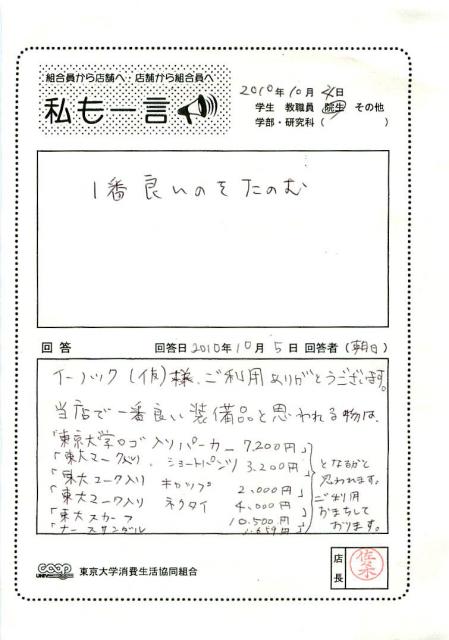 組合員から店舗へ・店舗から組合員へ
私も一言
2010年10月4日
学生 教職員 院生 その他
学部・研究科( )
1番良いのをたのむ
回答
回答日2010年10月5日 回答者(朝日)
イーノック(仮)様、ご利用ありがとうございます。
当店で一番良い装備品と思われる物は、
「東京大学ロゴ入りパーカー 7,200円」
「東大マーク入り、ショートパンツ 3,200円」
「東大マーク入り キャップ 2,000円」
「東大マーク入り ネクタイ 4,000円
「東大スカーフ 10,500円
「ナースサンダル
となるかと
思われます。
ご利用
おまちして
おります。
COOP
UNIV
東京大学消費生活協同組合
店長
佐々木